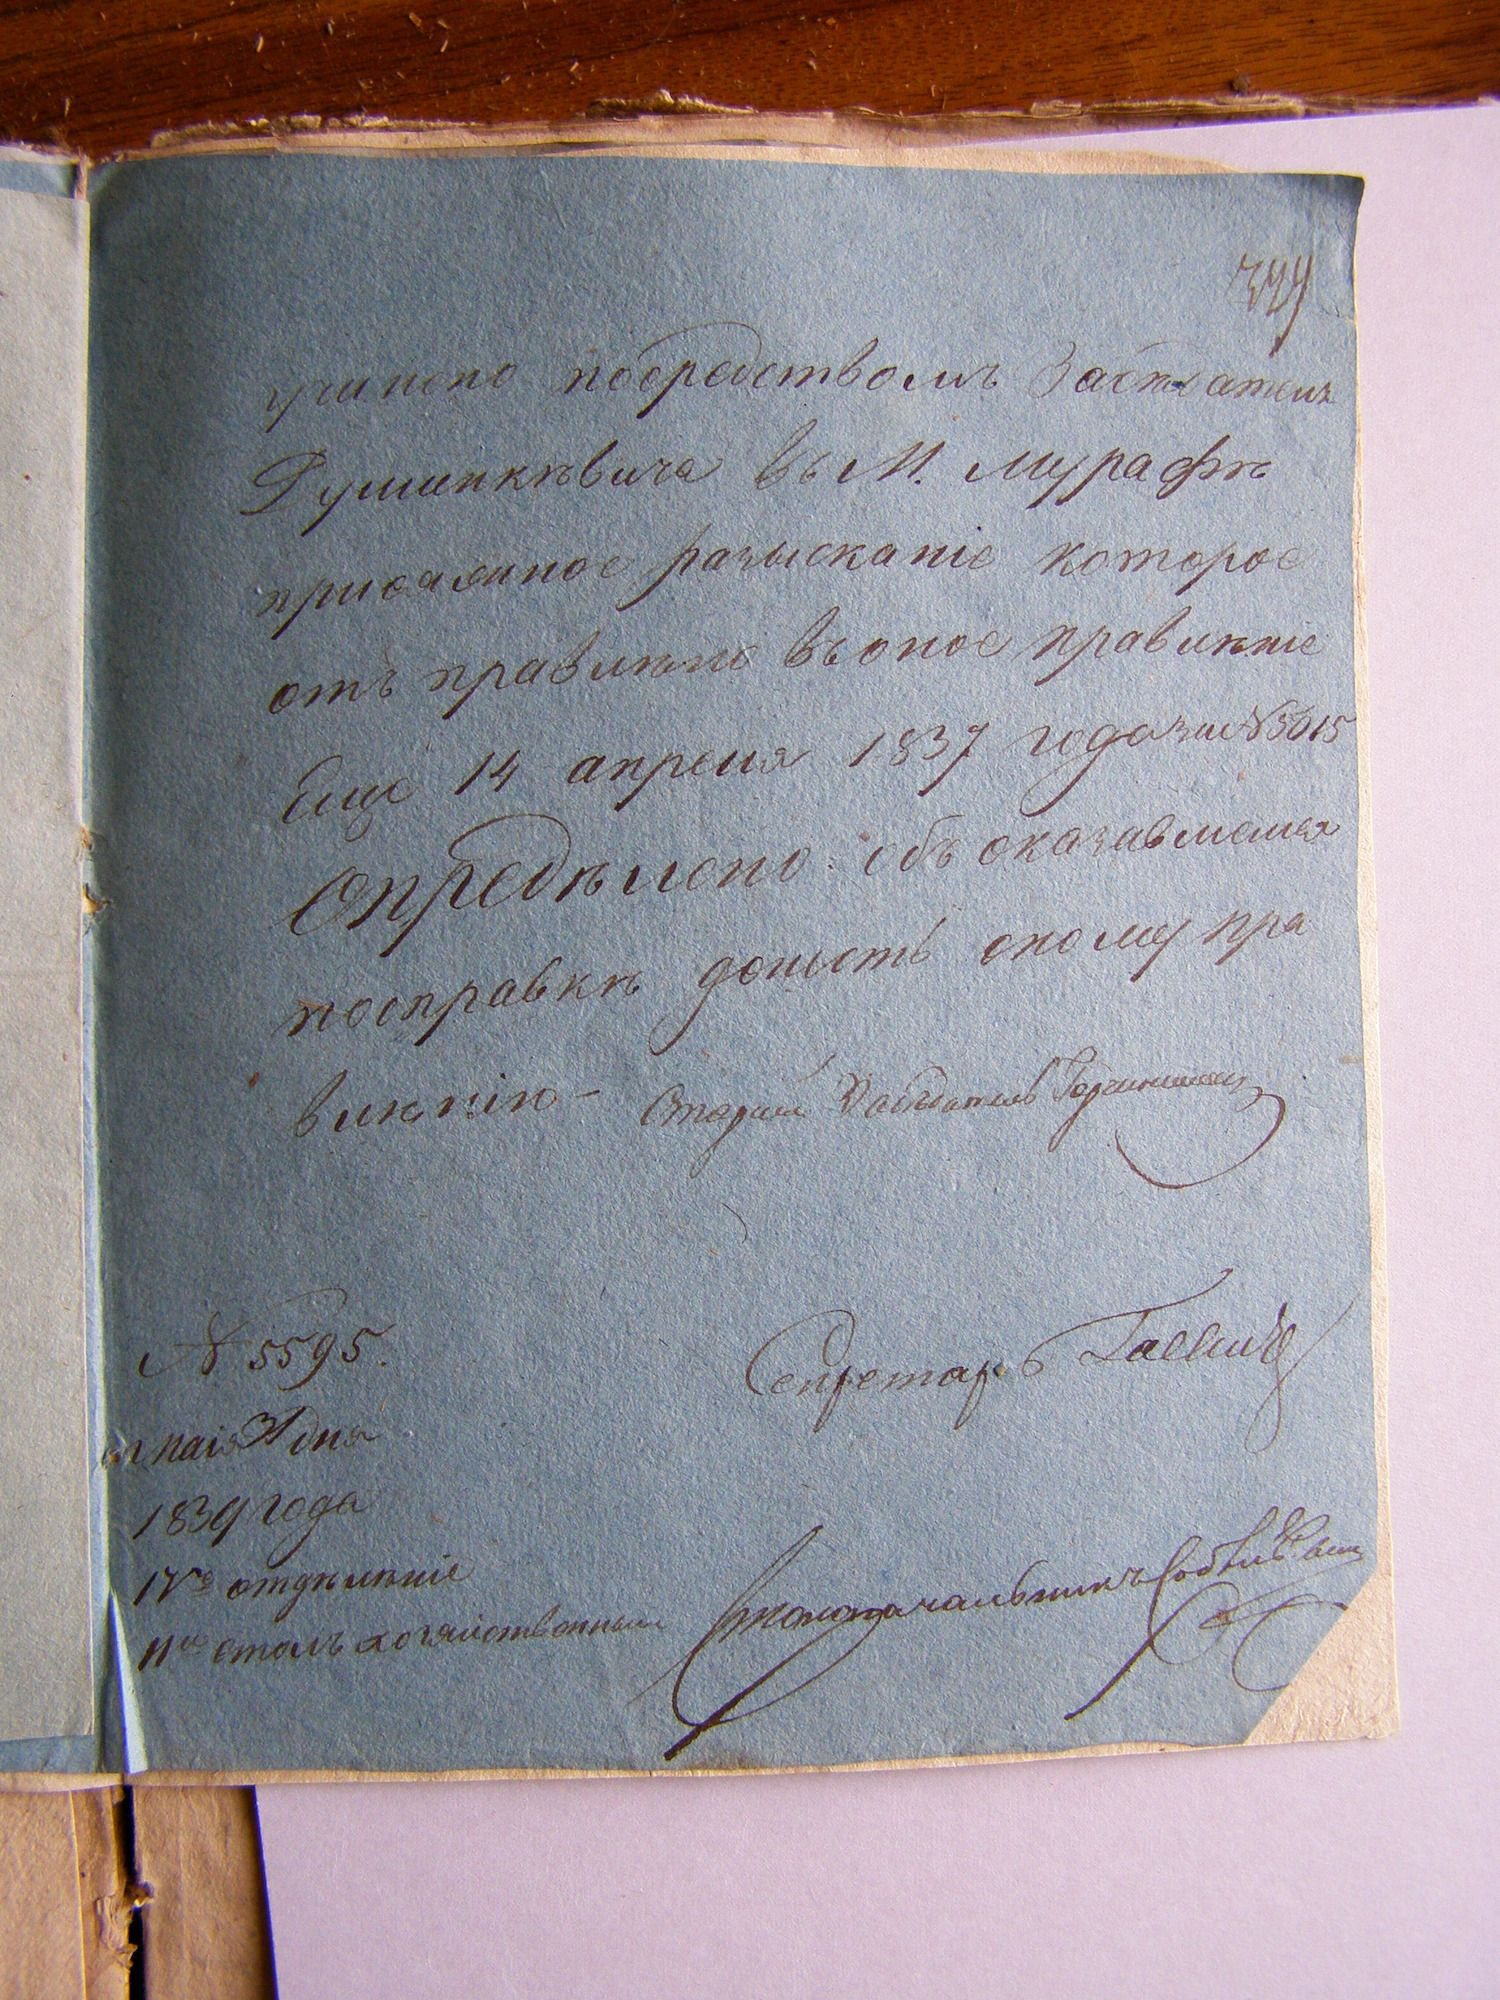 учинено посредствомъ Засѣдателя
Думинкѣвича въ М. Мурафѣ
присяжное разысканіе которое
отъ правлено въ оное правлѣніе
Еще 14 апреля 1837 года за № 5015
Опредѣлено: объ оказавшемся
посправкѣ донесть оному пра
влѣнію – Старшій Засѣдатель
№ 5595.
Секретарь
маія 31 дня
1839 года
IVе отдѣлѣніе
IIй столъ хозяйственный
Столоначальникъ